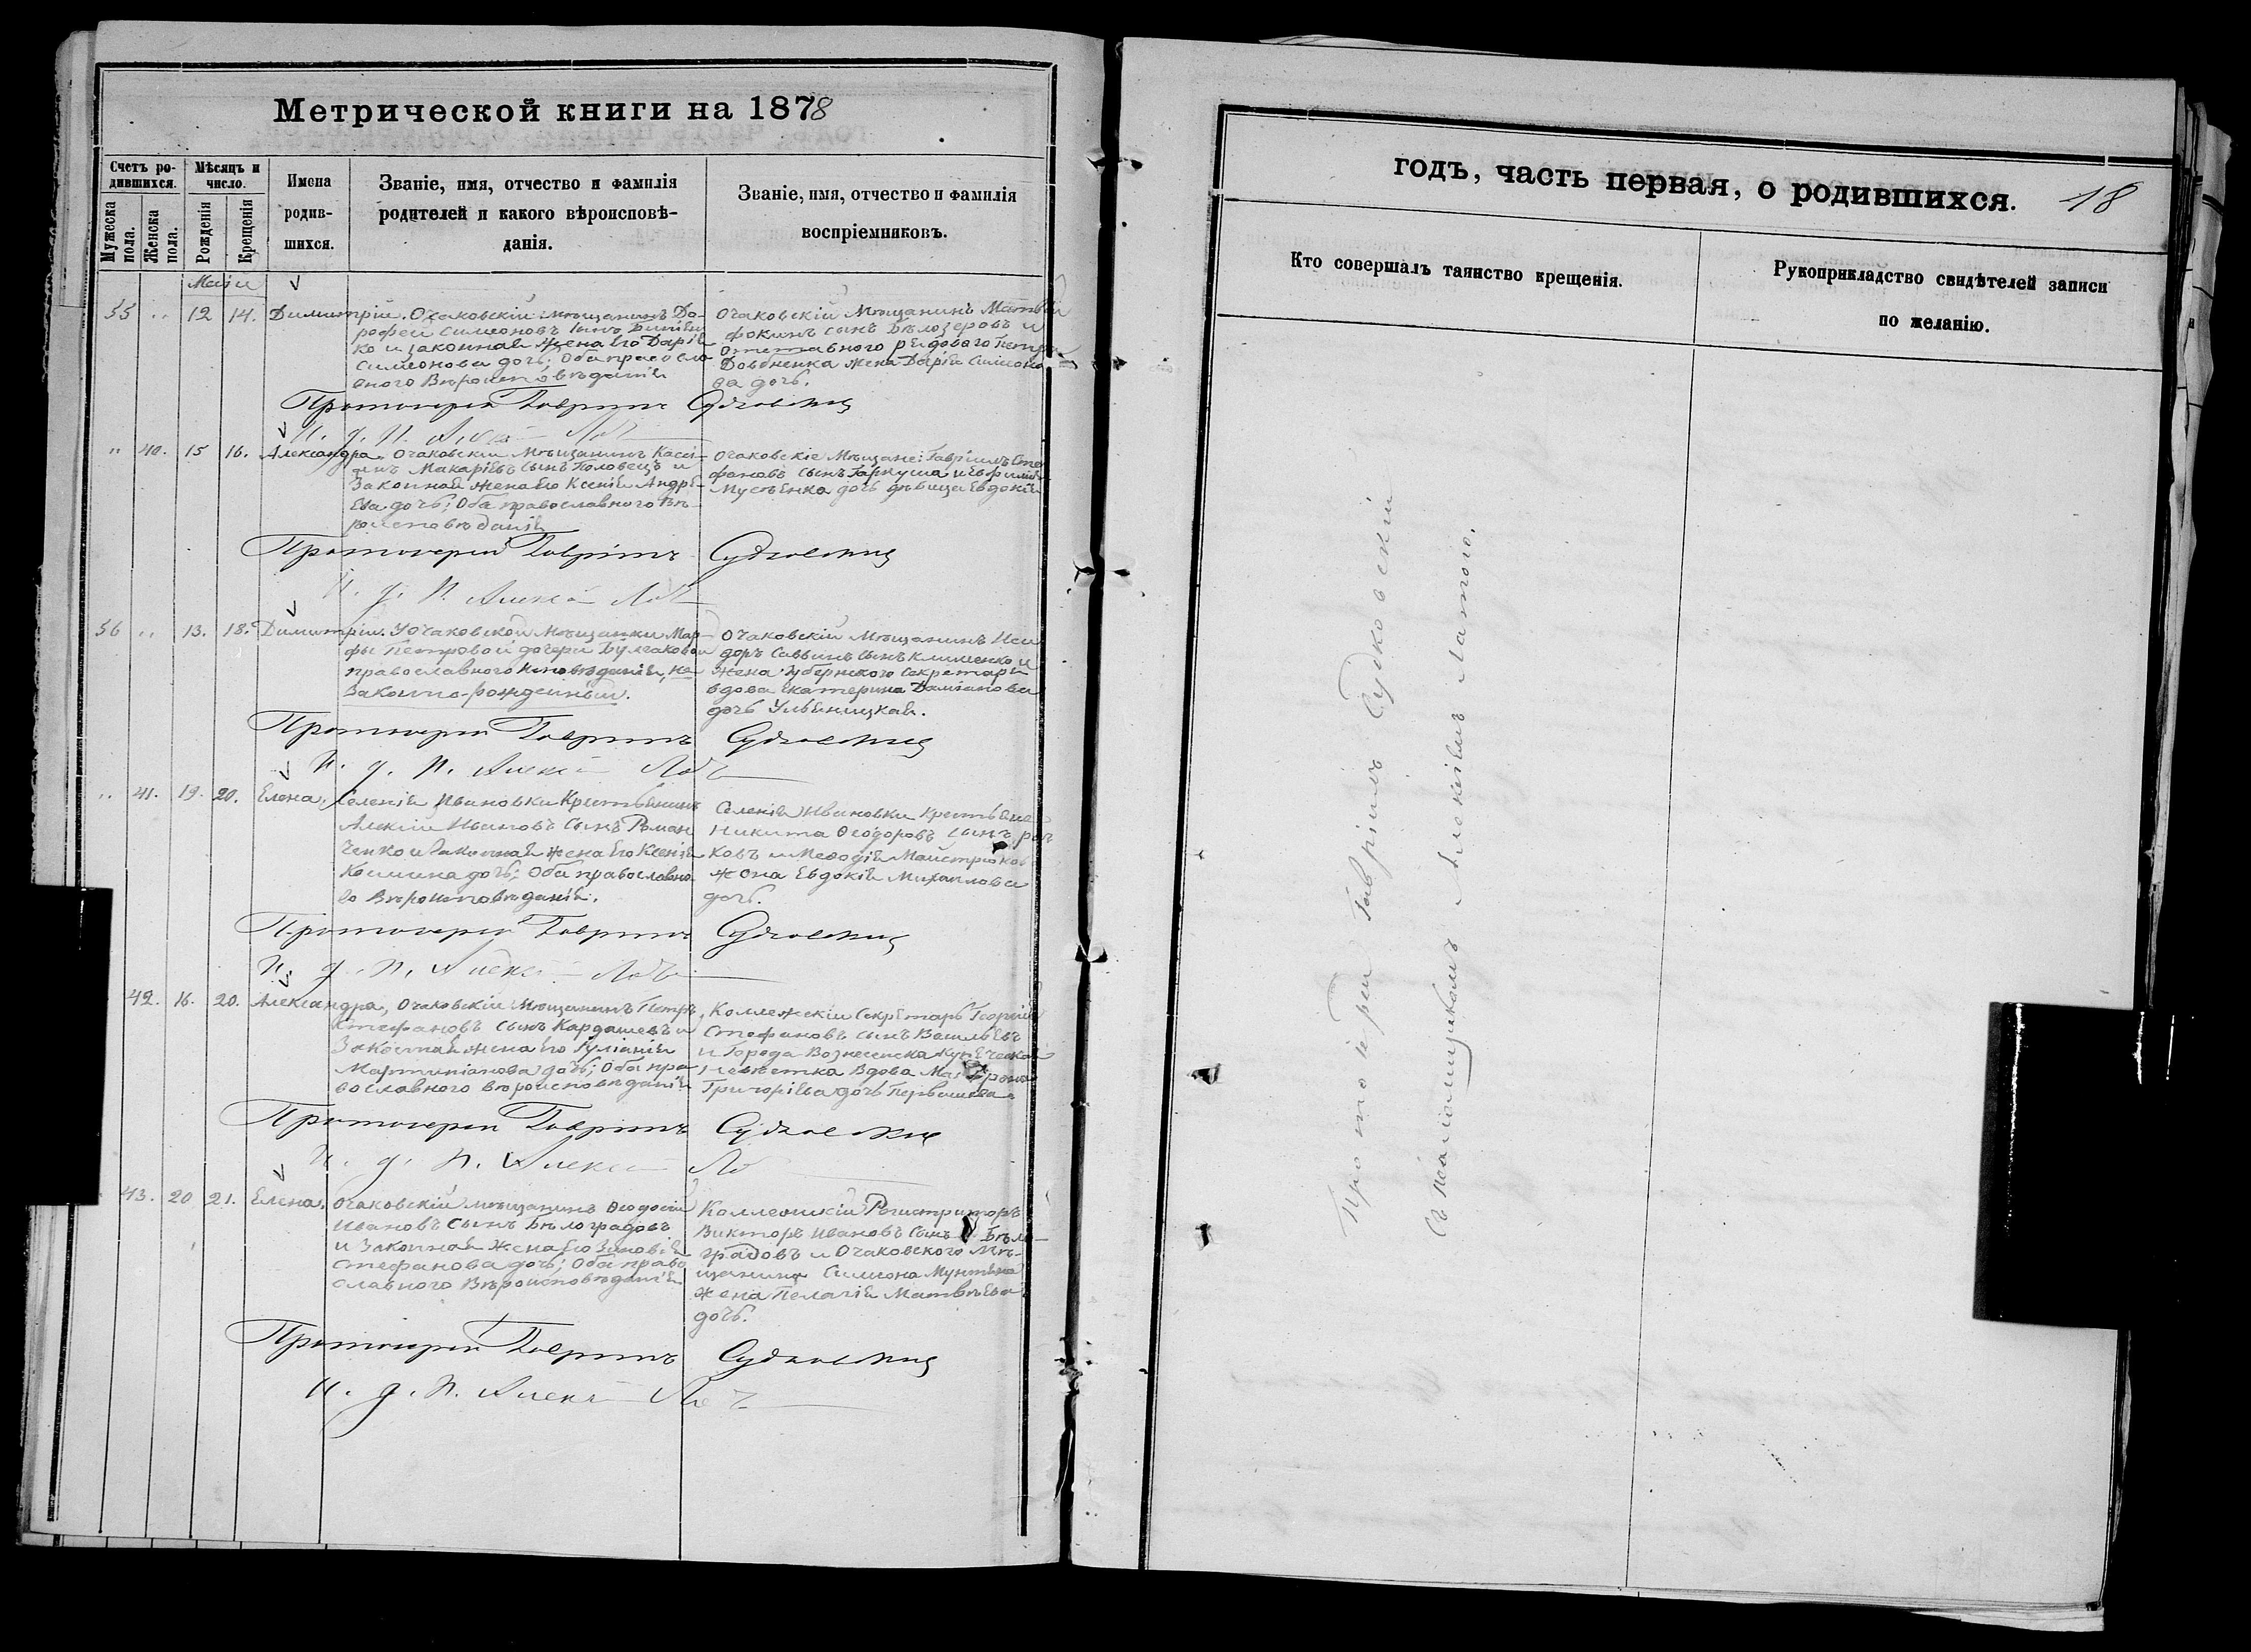 Метрической книги на 1878
Счетъ ро-
дившихся.
Мужеска пола.
Женска пола.
Мѣсяцъ и
число.
Рожденія
Крещенія
Имена
родив-
шихся.
Званіе, имя, отчество и фамилія
родителей и какого вѣроисповѣ-
данія.
Званіе, имя, отчество и фамилія
воспріемниковъ.
Маія
55 " 12 14. Димитрій. Очаковскій мѣщанинъ До-
рофей Симеоновъ сынъ
ко и законная жена его Дарія
Симеонова дочь; Оба православ
наго Вѣроисповѣданія
Очаковскій Мѣщанинъ Матвѣй
Фокинъ сынъ Бѣлозеровъ и
Отставного рядового Петра
Довбненка жена Дарія Симеоно
ва дочь.
Протоіерей Гавріилъ Судковскій
И. д. П. Алексій
" 40. 15 16. Александра. Очаковскій Мѣщанинъ Касси-
анъ Макаріевъ сынъ Половецъ и
Законная жена его Ксенія Андре-
ева дочь; Оба православного Вѣ-
роисповѣданія
Очаковскіе Мѣщане: Гавріилъ Сте
фановъ сынъ Гаркуша и
дочь дѣвица Евдокія
Протоіерей Гавріилъ Судковскій
И. д. П. Алексій
56 " 13. 18. Димитрій. У Очаковской Мѣщанки Мар-
фы Петровой дочери Булгаковой
православного исповѣданія, не-
законно-рожденный.
Очаковскій Мѣщанинъ Иси
доръ Саввинъ сынъ Клименко и
жена Губернского Секретаря
вдова Екатерина Даміанова
дочь Ульяницкая.
Протоіерей Гавріилъ Судковскій
И. д. П. Алексій
" 41. 19. 20. Елена. Селенія Ивановки Крестьянинъ
Алексій Ивановъ сынъ Роман
ченко и Законная жена его Ксенія
Космина дочь; Оба православна-
го Вѣроисповѣданія.
Селенія Ивановки Крестьяне
Никита Ѳеодоровъ сынъ
ковъ и Меѳодія Майстрюков
жена Евдокія Михаилова
дочь.
Протоіерей Гавріилъ Судковскій
И. д. П. Алексій
42. 16. 20. Александра, Очаковскій Мѣщанинъ Петръ
Стефановъ сынъ Кардашевъ и
Законная жена его Іуліанія
Мартиніанова дочь; Оба пра
вославного вѣроисповѣданія
Коллежскій Секретарь Георгій
Стефановъ сынъ Васильевъ
и Города Вознесенска Купеческая
Невѣстка Вдова Матрона
Григоріева дочь
Протоіерей Гавріилъ Судковскій
И. д. П. Алексій
43. 20 21. Елена. Очаковскій мѣщанинъ Ѳеодосій
Ивановъ сынъ Бѣлоградовъ
и Законная Жена его Зиновія
Стефанова дочь; Оба право
славного Вѣроисповѣданія
Коллежскій Регистраторъ
Викторъ Ивановъ сынъ Бѣло-
градовъ и Очаковского Мѣ-
щанина Симеона
жена Пелагія Матвѣева
дочь.
Протоіерей Гавріилъ Судковскій
И. д. П. Алексій
годъ, часть первая, о родившихся. 18
Кто совершалъ таинство крещенія.
Рукоприкладство свидѣтелей записи
по желанію.
Протоіерей Гавріилъ Судковскій
съ псаломщикомъ Алексіемъ